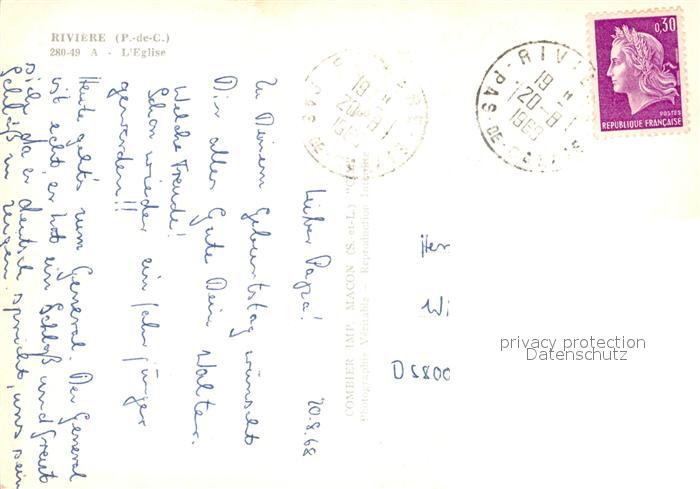 RIVIÈRE (P.-de-C.)
280-49 A - L'Eglise
20.8.68
Lieber Papa!
Zu Deinem Geburtstag wünscht
Dir alles Gute Dein Walter.
Welche Freude!
Schon wieder ein Jahr jünger
geworden!!
Heute geht's zum General. Der General
ist echt, er hat ein Schloß und freut
sich, da er deutsch spricht, uns sein
Schloß zu zeigen.
COMBIER IMP. MACON (S.-et-L.)
Photographie Véritable - Reproduction
RIVIÈ
19 H
20-8
1968
PAS-DE-CALAIS
19 H
20-8
PAS DE CALAIS
0,30
POSTES
REPUBLIQUE FRANÇAISE
Her
Wi
D5800
privacy protection
Datenschutz